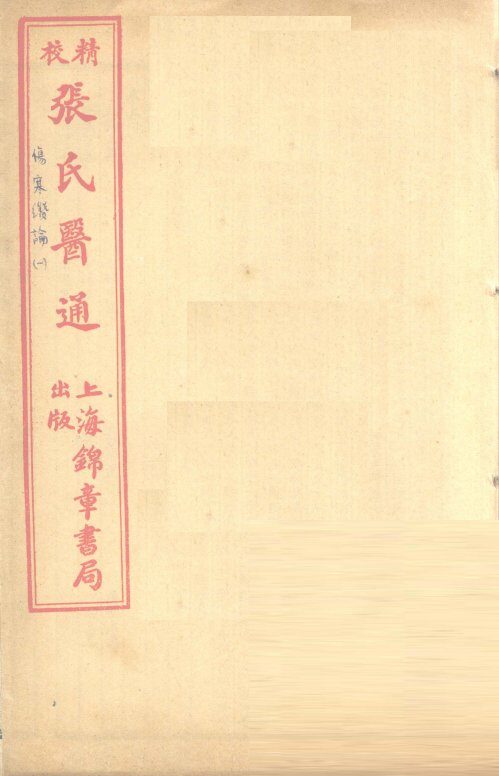 精校
張氏醫通
上海錦章書局
出版
傷寒纘論(一)